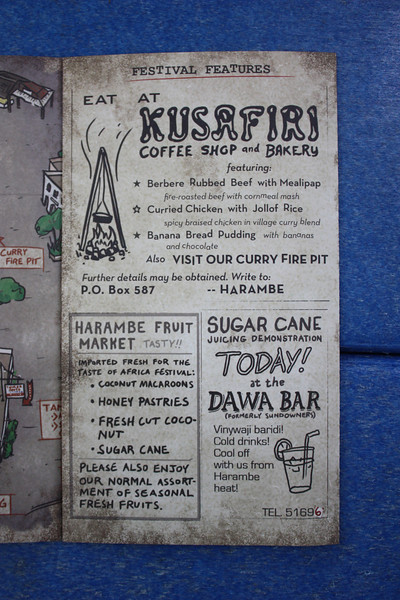 FESTIVAL FEATURES
EAT AT
KUSAFIRI
COFFEE SHOP and BAKERY
featuring:
★ Berbere Rubbed Beef with Mealipap
fire-roasted beef with cornmeal mash
☆ Curried Chicken with Jollof Rice
spicy braised chicken in village curry blend
★ Banana Bread Pudding with bananas
and chocolate
Also VISIT OUR CURRY FIRE PIT
Further details may be obtained. Write to:
P.O. Box 587 -- HARAMBE
HARAMBE FRUIT
MARKET TASTY!!
IMPORTED FRESH FOR THE
TASTE OF AFRICA FESTIVAL:
• COCONUT MACAROONS
• HONEY PASTRIES
• FRESH CUT COCO-
NUT
• SUGAR CANE
PLEASE ALSO ENJOY
OUR NORMAL ASSORT-
MENT OF SEASONAL
FRESH FRUITS.
SUGAR CANE
JUICING DEMONSTRATION
TODAY!
at the
DAWA BAR
(FORMERLY SUNDOWNERS)
Vinywaji baridi!
Cold drinks!
Cool off
with us from
Harambe
heat!
TEL. 51696
CURRY
FIRE PIT